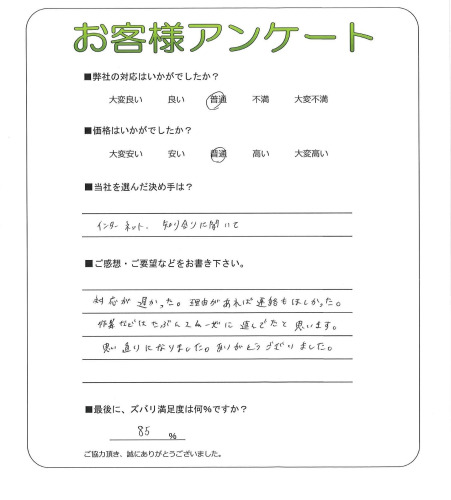 お客様アンケート
■弊社の対応はいかがでしたか？
大変良い 良い 普通 不満 大変不満
■価格はいかがでしたか？
大変安い 安い 普通 高い 大変高い
■当社を選んだ決め手は？
インターネット、知り合いに聞いて
■ご感想・ご要望などをお書き下さい。
対応が遅かった。理由があれば連絡もほしかった。
作業などはたぶんスムーズに進んでたと思います。
思い通りになりました。ありがとうございました。
■最後に、ズバリ満足度は何%ですか？
85 %
ご協力頂き、誠にありがとうございました。